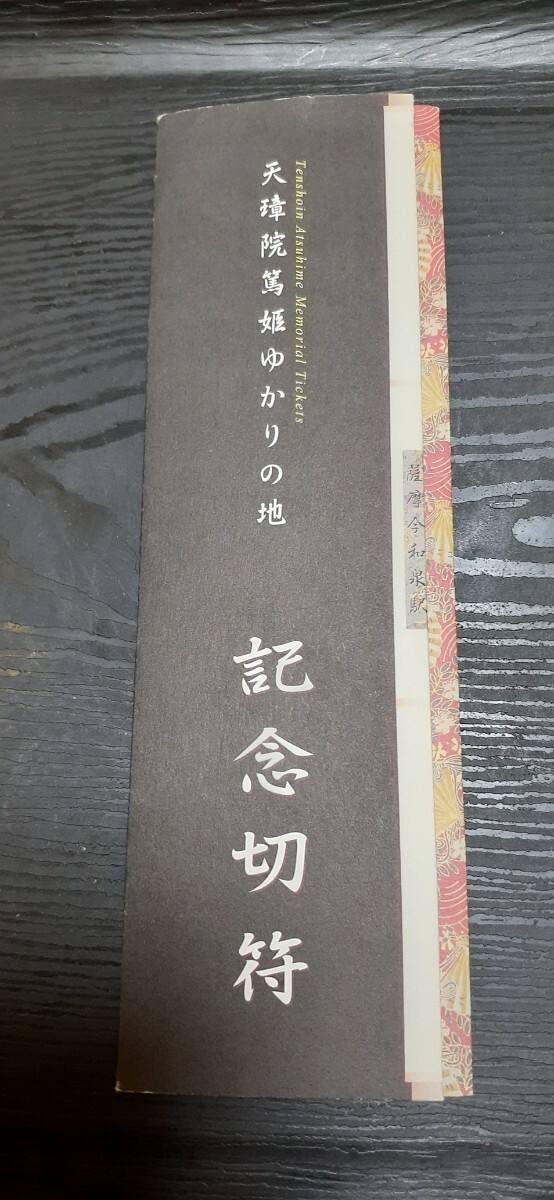 薩摩今和泉駅
Tenshoin Atsuhime Memorial Tickets
天璋院篤姫ゆかりの地
記念切符